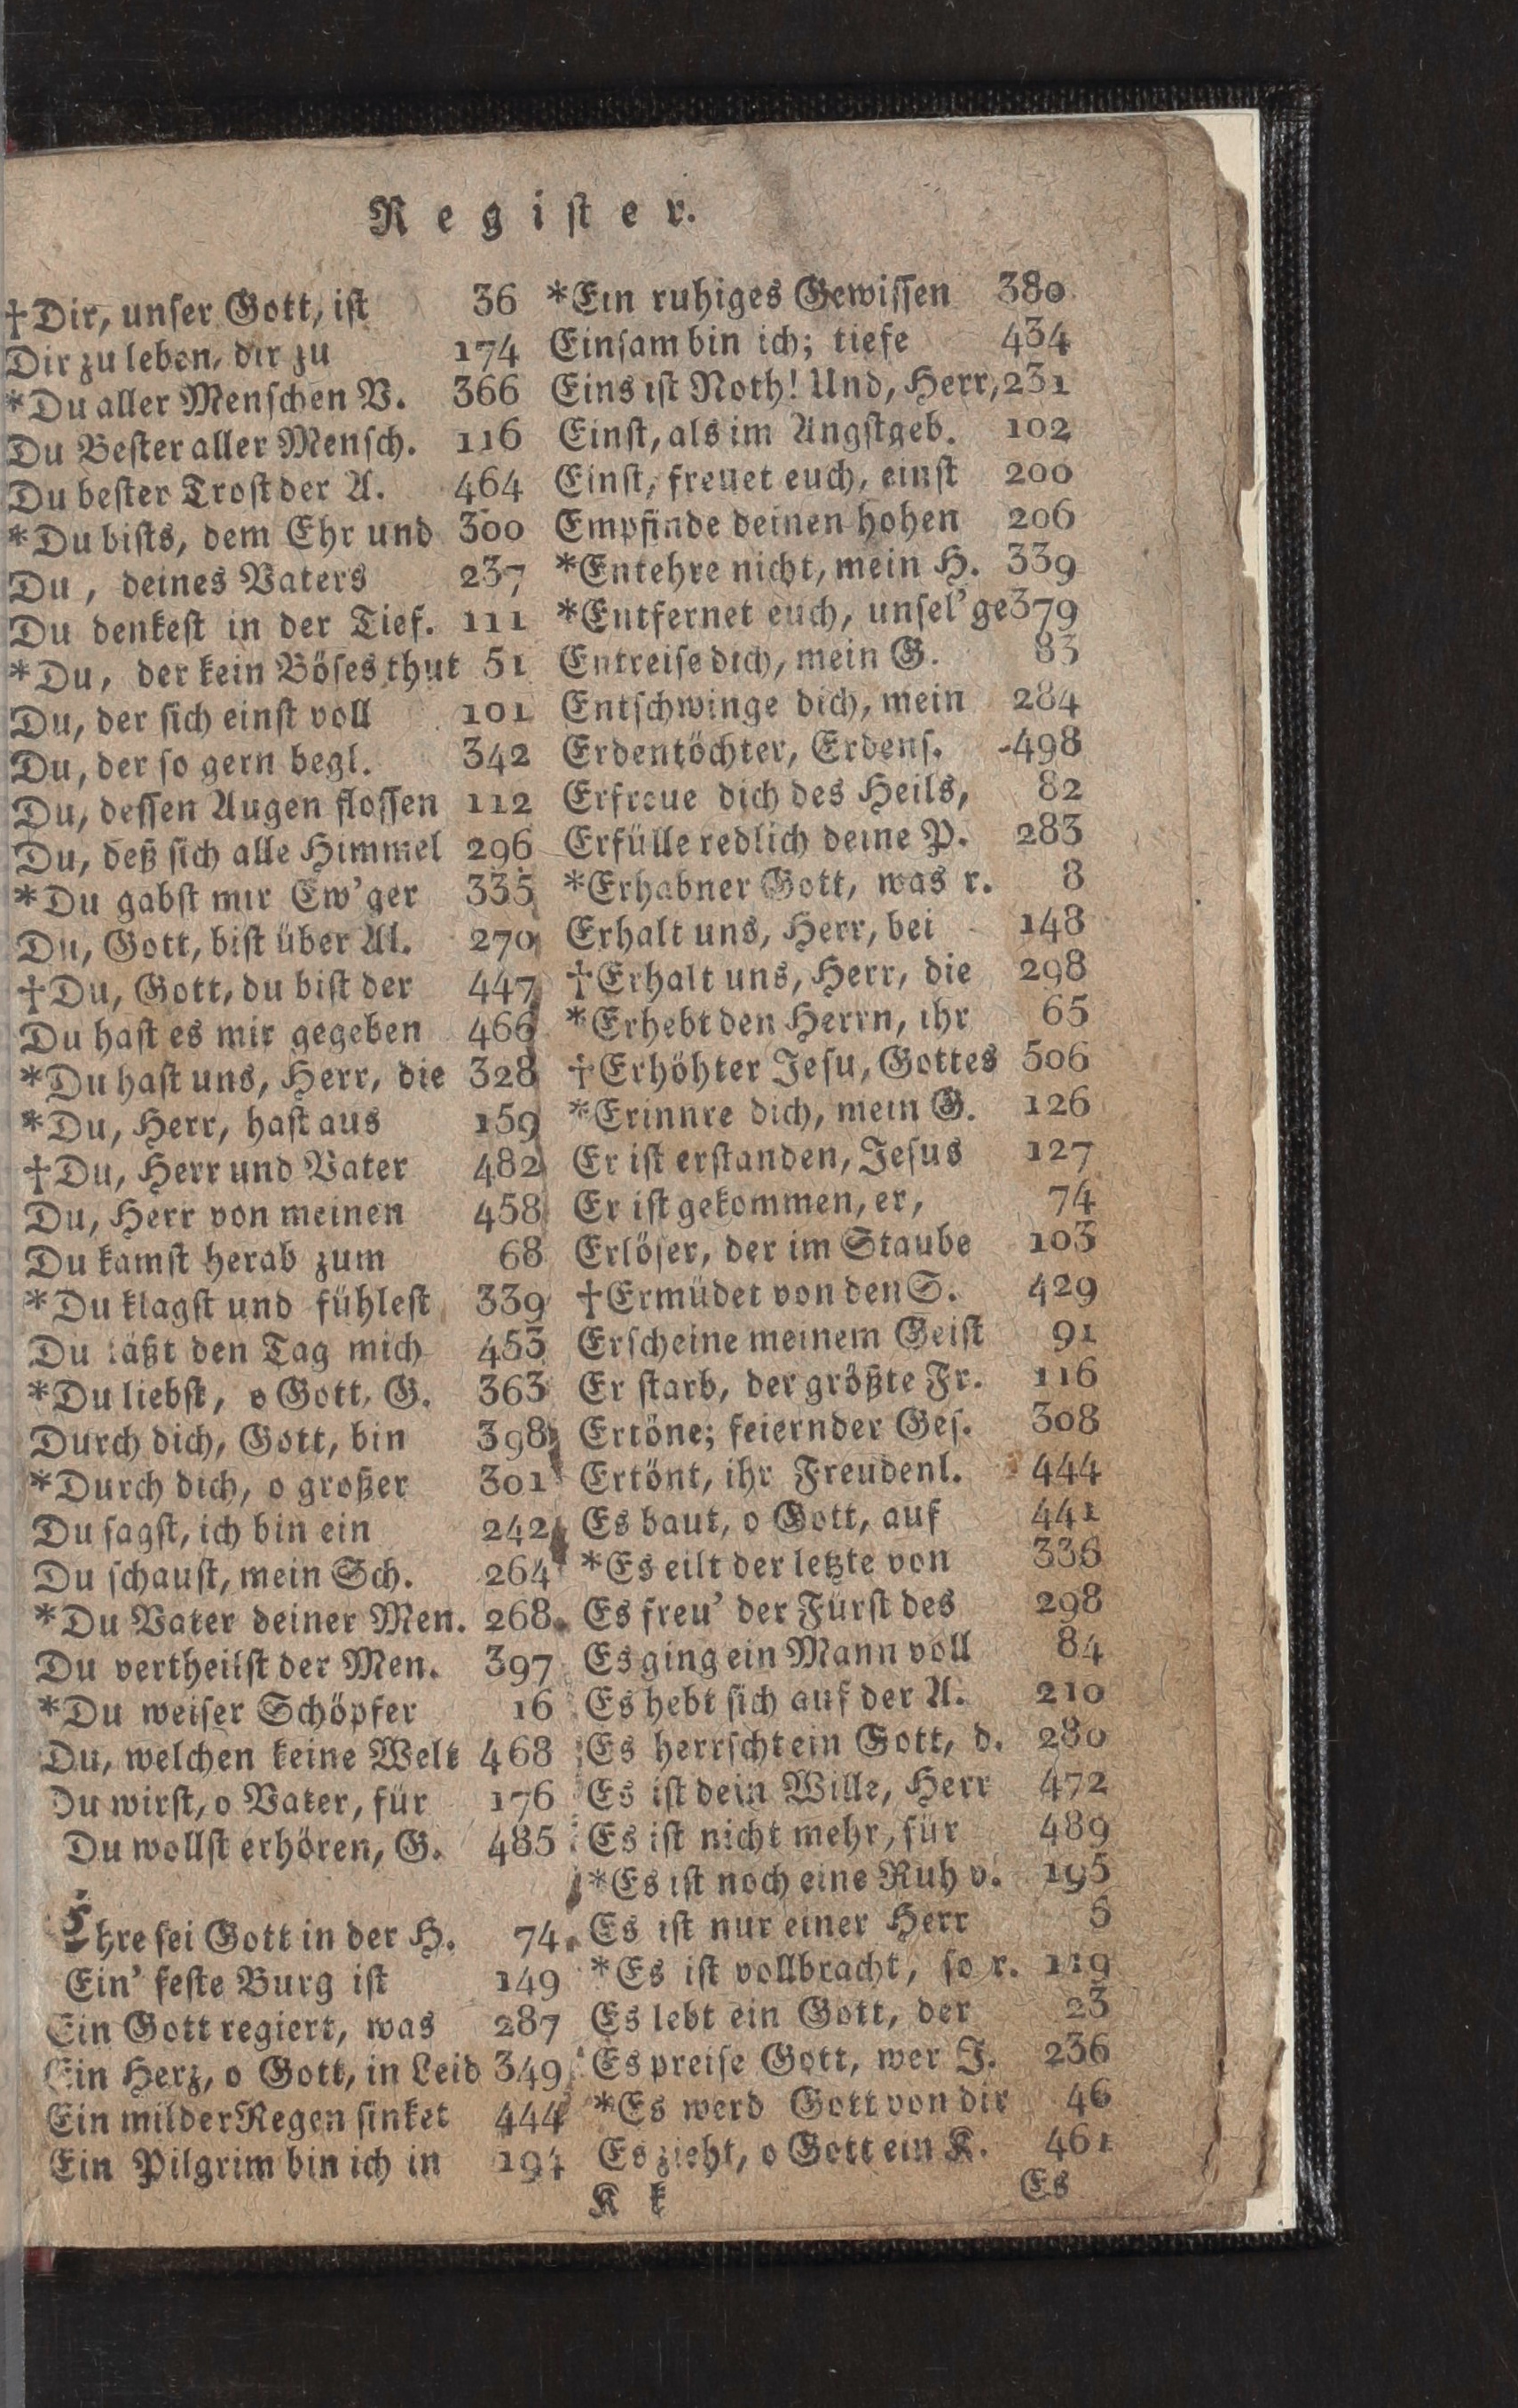 Register.
†Dir, unser Gott, ist 36
Dir zu leben, dir zu 174
*Du aller Menschen V. 366
Du Bester aller Mensch. 116
Du bester Trost der A. 464
*Du bists, dem Ehr und 300
Du, deines Vaters 237
Du denkest in der Tief. 111
*Du, der kein Böses thut 51
Du, der sich einst voll 101
Du, der so gern begl. 342
Du, dessen Augen flossen 112
Du, deß sich alle Himmel 296
*Du gabst mir Ew'ger 335
Du, Gott, bist über Al. 270
†Du, Gott, du bist der 447
Du hast es mir gegeben 466
*Du hast uns, Herr, die 328
*Du, Herr, hast aus 159
†Du, Herr und Vater 482
Du, Herr von meinen 458
Du kamst herab zum 68
*Du klagst und fühlest 339
Du läßt den Tag mich 453
*Du liebst, o Gott, G. 363
Durch dich, Gott, bin 398
*Durch dich, o großer 301
Du sagst, ich bin ein 242
Du schaust, mein Sch. 264
*Du Vater deiner Men. 268
Du vertheilst der Men. 397
*Du weiser Schöpfer 16
Du, welchen keine Welt 468
Du wirst, o Vater, für 176
Du wollst erhören, G. 485
Ehre sei Gott in der H. 74
Ein' feste Burg ist 149
Ein Gott regiert, was 287
Ein Herz, o Gott, in Leid 349
Ein milder Regen sinket 444
Ein Pilgrim bin ich in 194
*Ein ruhiges Gewissen 380
Einsam bin ich; tiefe 434
Eins ist Noth! Und, Herr, 231
Einst, als im Angstgeb. 102
Einst, freuet euch, einst 200
Empfinde deinen hohen 206
*Entehre nicht, mein H. 339
*Entfernet euch, unsel'ge 379
Entreise dich, mein G. 83
Entschwinge dich, mein 284
Erdentöchter, Erdens. 498
Erfreue dich des Heils, 82
Erfülle redlich deine P. 283
*Erhabner Gott, was r. 8
Erhalt uns, Herr, bei 148
†Erhalt uns, Herr, die 298
*Erhebt den Herrn, ihr 65
†Erhöhter Jesu, Gottes 506
*Erinnre dich, mein G. 126
Er ist erstanden, Jesus 127
Er ist gekommen, er, 74
Erlöser, der im Staube 103
†Ermüdet von den S. 429
Erscheine meinem Geist 91
Er starb, der größte Fr. 116
Ertöne; feiernder Ges. 308
Ertönt, ihr Freudenl. 444
Es baut, o Gott, auf 441
*Es eilt der letzte von 336
Es freu' der Fürst des 298
Es ging ein Mann voll 84
Es hebt sich auf der A. 210
Es herrscht ein Gott, d. 280
Es ist dein Wille, Herr 472
Es ist nicht mehr, für 489
*Es ist noch eine Ruh v. 195
Es ist nur einer Herr
*Es ist vollbracht, so r. 119
Es lebt ein Gott, der 23
Es preise Gott, wer J. 236
*Es werd Gott von dir 46
Es zieht, o Gott ein K. 461
K k
Es